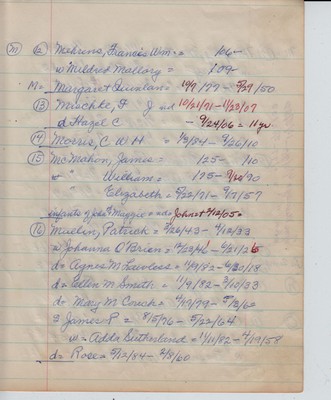 M (12) Mehrens, Francis Wm = 106-
w Mildred Mallory = 109-
M= Margaret = 10/9/77 - 5/29/50
(13) Mischke, F J 10/21/71 - 1/23/07
d Hazel C - 9/24/06 = 11
(14) Morris, C W H = 1/3/84 - 9/26/10
(15) McMahon, James = 125- /10
" William = 175- /70
" Elizabeth = 5/22/71 - 9/17/57
infants of Jos & Maggie = John + 4/12/05=
(16) Mullin, Patrick = 3/26/43 - 4/12/33
w Johanna O'Brien = - 4/21/26
d= Agnes M Lawless = 1/19/82 - 4/30/18
d= Ellen M. Smith = 11/9/82 - 3/10/33
d= Mary M Couch = 4/19/79 - 5/13/62
s James P = 8/5/76 - 5/22/64
w = Adda Sutherland = 11/11/82 - 4/19/58
d= Rose = 5/12/84 - 2/8/60